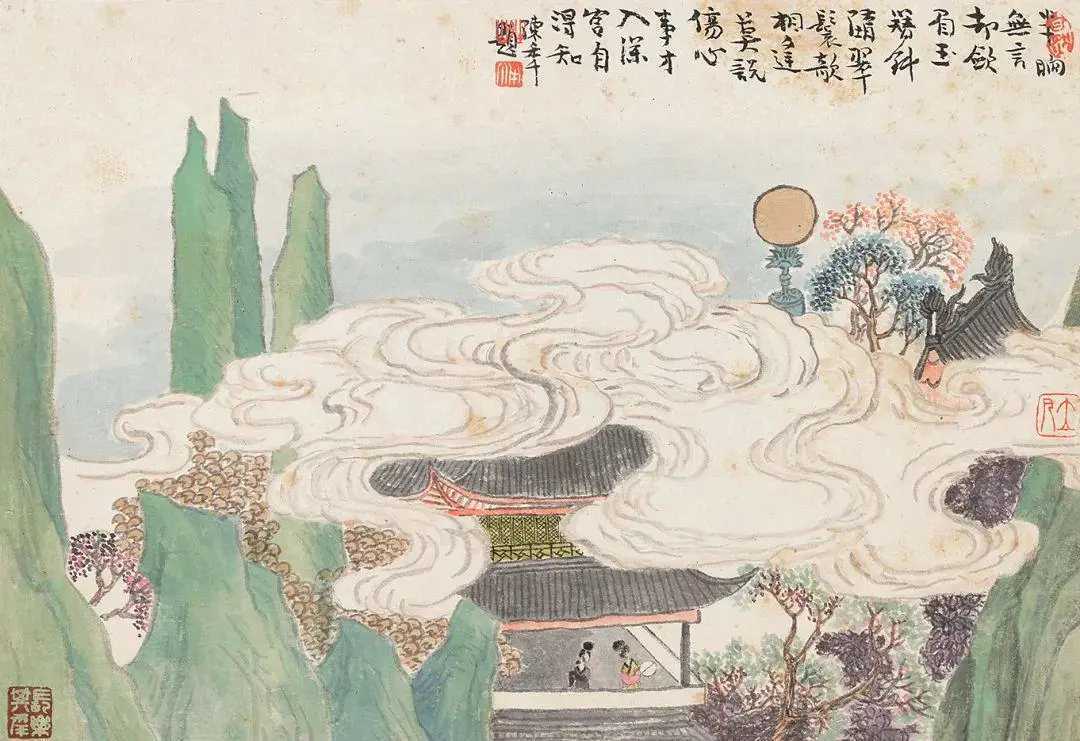 半晌
無言
却斂
眉玉
簪斜
溜翠
鬟欹
相逢
莫說
傷心
事才
入深
宮自
得知
陳半丁
題